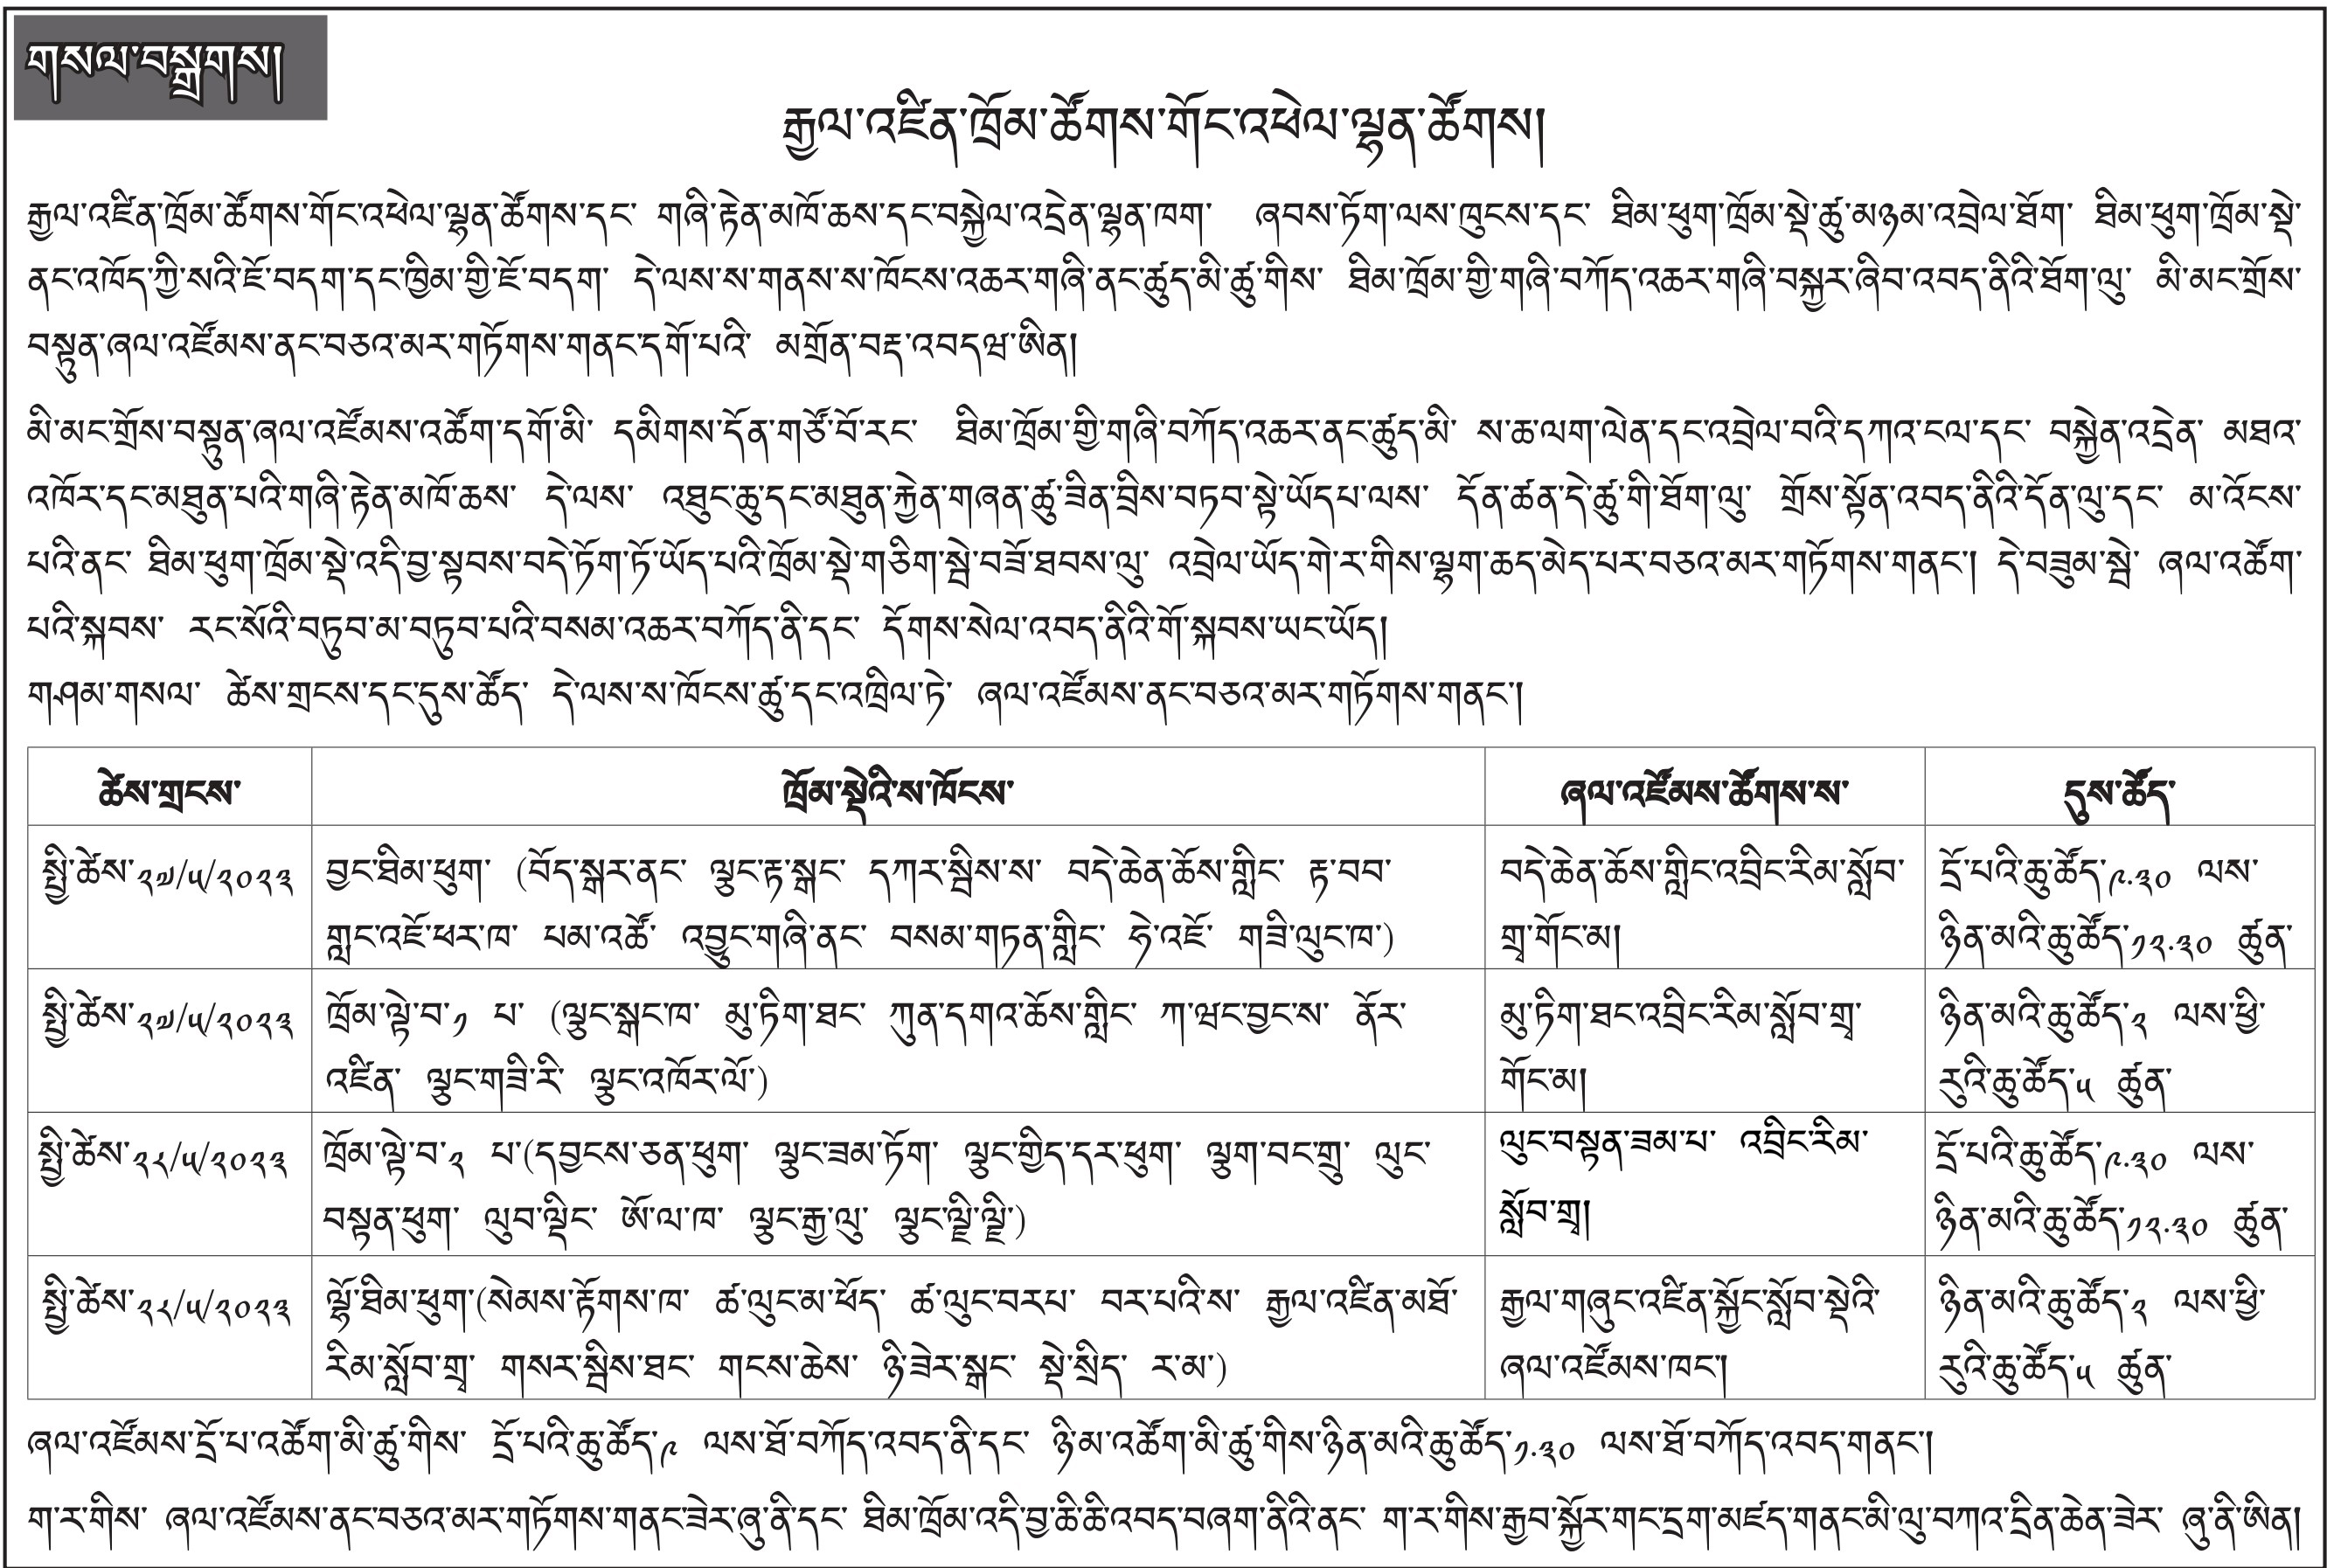 གསལ་བསྒྲགས།
རྒྱལ་འཛིན་ཁྲོམ་ཚོགས་གོང་འཕེལ་ལྷན་ཚོགས།
རྒྱལ་འཛིན་ཁྲོམ་ཚོགས་གོང་འཕེལ་ལྷན་ཚོགས་དང་ གཞི་རྟེན་མཁོ་ཆས་དང་བསྐྱེལ་འདྲེན་ལྷན་ཁག་ ཞབས་ཏོག་ལས་ཁུངས་དང་ ཐིམ་ཕུག་ཁྲོམ་སྡེ་ཚུ་མཉམ་འབྲེལ་ཐོག་ ཐིམ་ཕུག་ཁྲོམ་སྡེ་
ནང་འཁོད་ཀྱི་སའི་ཇོ་བདག་དང་ཁྱིམ་གྱི་ཇོ་བདག་ དེ་ལས་ས་གནས་ས་ཁོངས་འཆར་གཞི་ནང་ཚུད་མི་ཚུ་གིས་ ཐིམ་ཁྲོམ་གྱི་གཞི་བཀོད་འཆར་གཞི་བསྐྱར་ཞིབ་འབད་ནིའི་ཐོག་ལུ་ མི་མང་གྲོས་
བསྟུན་ཞལ་འཛོམས་ནང་བཅའ་མར་གཏོགས་གནང་དགོ་པའི་ མགྲོན་བརྡ་འབདཝ་ཨིན།
མི་མང་གྲོས་བསྟུན་ཞལ་འཛོམས་འཚོག་དགོ་མི་ དམིགས་དོན་གཙོ་བོ་རང་ ཐིམ་ཁྲོམ་གྱི་གཞི་བཀོད་འཆར་ནང་ཚུད་མི་ ས་ཆ་ལག་ལེན་དང་འབྲེལ་བའི་དཀའ་ངལ་དང་ བསྐྱེན་འདྲེན་ མཐའ་
འཁོར་དང་མཐུན་པའི་གཞི་རྟེན་མཁོ་ཆས་ དེ་ལས་ འཐུང་ཆུ་དང་མཐུན་རྐྱེན་གཞན་ཚུ་ཟིན་བྲིས་བཏབ་སྟེ་ཡོདཔ་ལས་ དོན་ཚན་དེ་ཚུ་གི་ཐོག་ལུ་ གྲོས་སྟོན་འབད་ནིའི་དོན་ལུ་དང་ མ་འོངས་
པའི་ནང་ ཐིམ་ཕུག་ཁྲོམ་སྡེ་འདི་བྱ་སྟབས་བདེ་ཏོག་ཏོ་ཡོད་པའི་ཁྲོམ་སྡེ་གཅིག་སྦེ་བཟོ་ཐབས་ལུ་ འབྲེལ་ཡོད་གེ་ར་གིས་ལྷག་ཆད་མེད་པར་བཅའ་མར་གཏོགས་གནང་། དེ་བཟུམ་སྦེ་ ཞལ་འཚོག་
པའི་སྐབས་ རང་སོའི་བཏུབ་མ་བཏུབ་པའི་བསམ་འཆར་བཀོད་ནི་དང་ དོགས་སེལ་འབད་ནིའི་གོ་སྐབས་ཡང་ཡོད།
གཤམ་གསལ་ ཚེས་གྲངས་དང་དུས་ཚོད་ དེ་ལས་ས་ཁོངས་ཚུ་དང་འཁྲིལ་ཏེ་ ཞལ་འཛོམས་ནང་བཅའ་མར་གཏོགས་གནང་།
ཚེས་གྲངས་ ཁྲོམ་སྡེའི་ས་ཁོངས་ ཞལ་འཛོམས་ཚོགས་ས་ དུས་ཚོད་
སྤྱི་ཚེས་༢༧/༥/༢༠༢༣ བྱང་ཐིམ་ཕུག་ (བོད་སྒར་ནང་ ལྕང་རྟ་སྒང་ དཀར་སྦིས་ས་ བདེ་ཆེན་ཆོས་གླིང་ རྟ་བབ་ བདེ་ཆེན་ཆོས་གླིང་འབྲིང་རིམ་སློབ་ དྲོ་པའི་ཆུ་ཚོད་༩.༣༠ ལས་
གླང་འཇོ་ཕར་ཁ་ པམ་འཚོ་ འབྱུང་གཞི་ནང་ བསམ་གཏན་གླིང་ ཧེ་འཇོ་ གཟི་ལུང་ཁ་) གྲྭ་གོང་མ། ཉིན་མའི་ཆུ་ཚོད་༡༢.༣༠ ཚུན་
སྤྱི་ཚེས་༢༧/༥/༢༠༢༣ ཁྲོམ་ལྟེ་བ་༡ པ་ (ལྕང་སྒང་ཁ་ མུ་ཏིག་ཐང་ ཀུན་དགའ་ཆོས་གླིང་ ཀ་ཝང་བྱང་ས་ ནོར་ མུ་ཏིག་ཐང་འབྲིང་རིམ་སློབ་གྲྭ་ ཉིན་མའི་ཆུ་ཚོད་༢ ལས་ཕྱི་
འཛིན་ ལྕང་གཟི་རི་ ལྕང་འཁོར་ལོ་) གོང་མ། རུའི་ཆུ་ཚོད་༥ ཚུན་
སྤྱི་ཚེས་༢༨/༥/༢༠༢༣ ཁྲོམ་ལྟེ་བ་༢ པ་(དབྱངས་ཅན་ཕུག་ ལྕང་ཟམ་ཏོག་ ལྕང་གྱིད་དར་ཕུག་ ལྕག་བང་གྲུ་ ལུང་ ལུང་བསྟན་ཟམ་པ་ འབྲིང་རིམ་ དྲོ་པའི་ཆུ་ཚོད་༩.༣༠ ལས་
བསྟན་ཕུག་ ལུབ་ལྡིང་ ཨོ་ལ་ཁ་ ལྕང་རྒྱ་ལུ་ ལྕང་ལྗི་ལྗི་) སློབ་གྲྭ། ཉིན་མའི་ཆུ་ཚོད་༡༢.༣༠ ཚུན་
སྤྱི་ཚེས་༢༨/༥/༢༠༢༣ ལྷོ་ཐིམ་ཕུག་(སེམས་རྟོགས་ཁ་ ཚ་ལུང་མ་ཕོད་ ཚ་ལུང་བརཔ་ བར་པའི་ས་ རྒྱལ་འཛིན་མཐོ་ རྒྱལ་གཞུང་འཛིན་སྐྱོང་སློབ་སྡེའི་ ཉིན་མའི་ཆུ་ཚོད་༢ ལས་ཕྱི་
རིམ་སློབ་གྲྭ་ གསར་སྦིས་ཐང་ གངས་ཆེས་ ཉི་ཟེར་སྒང་ སྡེ་སྲིད་ ར་མ་) ཞལ་འཛོམས་ཁང་། རུའི་ཆུ་ཚོད་༥ ཚུན་
ཞལ་འཛོམས་དྲོ་པ་འཚོག་མི་ཚུ་གིས་ དྲོ་པའི་ཆུ་ཚོད་༩ ལས་ཐོ་བཀོད་འབད་ནི་དང་ ཉི་མ་འཚོག་མི་ཚུ་གིས་ཉིན་མའི་ཆུ་ཚོད་༡.༣༠ ལས་ཐོ་བཀོད་འབད་གནང་།
ག་ར་གིས་ ཞལ་འཛོམས་ནང་བཅའ་མར་གཏོགས་གནང་ཟེར་ཞུ་ནི་དང་ ཐིམ་ཁྲོམ་འདི་བྱ་ཆི་ཆི་འབད་བཞག་ནིའི་ནང་ ག་ར་གིས་རྒྱབ་སྐྱོར་གང་དྲག་མཛད་གནང་མི་ལུ་བཀའ་དྲིན་ཆེན་ཟེར་ ཞུ་ནི་ཨིན།